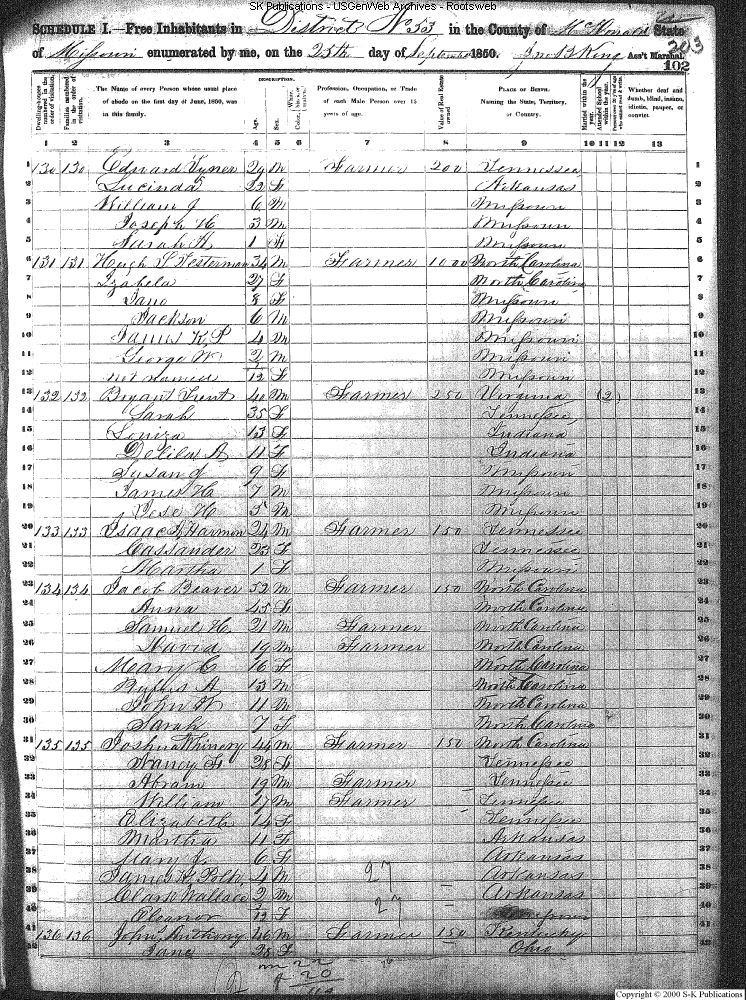 SK Publications - USGenWeb Archives - Rootsweb
SCHEDULE I.—Free Inhabitants in District No 53 in the County of McDonald State
of Missouri enumerated by me, on the 25th day of September 1850. Jno B King Ass't Marshal.
203
102
Dwelling-houses numbered in the order of visitation.
Families numbered in the order of visitation.
The Name of every Person whose usual place of abode on the first day of June, 1850, was in this family.
DESCRIPTION.
Age.
Sex.
Color,
Profession, Occupation, or Trade of each Male Person over 15 years of age.
Value of Real Estate owned
PLACE OF BIRTH. Naming the State, Territory, or Country.
Married within the year.
Attended School within the year.
Whether deaf and dumb, blind, insane, idiotic, pauper, or convict.
1 2 3 4 5 6 7 8 9 10 11 12 13
1 130 130 Edward 29 M Farmer 200 Tennessee 1
2 Lucinda 22 F Arkansas 2
3 William J 6 M Missouri 3
4 Joseph H 3 M Missouri 4
5 Sarah 1 F Missouri 5
6 131 131 Hugh Testerman 34 M Farmer 1000 North Carolina 6
7 Izabela 27 F North Carolina 7
8 Jane 8 F Missouri 8
9 Jackson 6 M Missouri 9
10 James K P 4 M Missouri 10
11 George W 2 M Missouri 11
12 not named /12 F Missouri 12
13 132 132 Bryant Trent 40 M Farmer 250 Virginia (2) 13
14 Sarah 35 F Tennessee 14
15 Louiza 13 F Indiana 15
16 Delila A 11 F Indiana 16
17 Susan J 9 F Missouri 17
18 James H 7 M Missouri 18
19 Jese H 5 M Missouri 19
20 133 133 Isaac Harmon 24 M Farmer 150 Tennessee 20
21 Cassander 23 F Tennessee 21
22 Martha 1 F Missouri 22
23 134 134 Jacob Beaver 52 M Farmer 150 North Carolina 23
24 Anna 45 F North Carolina 24
25 Samuel H. 21 M Farmer North Carolina 25
26 David 19 M Farmer North Carolina 26
27 Meary C 16 F North Carolina 27
28 Rufus A 13 M North Carolina 28
29 John W 11 M North Carolina 29
30 Sarah 7 F North Carolina 30
31 135 135 Joshua Whinery 44 M Farmer 150 North Carolina 31
32 Nancy 28 F Tennessee 32
33 Abram 19 M Farmer Tennessee 33
34 William 17 M Farmer Tennessee 34
35 Elizabeth 14 F Tennessee 35
36 Martha 11 F Arkansas 36
37 Mary J. 6 F Arkansas 37
38 James K Polk 4 M 27 Arkansas 38
39 Clark Wallace 2 M Arkansas 39
40 Eleanor /12 F 27 40
41 136 136 John Anthony 46 M Farmer 150 Kentucky 41
42 Jane 28 F Ohio 42
m 22
f 20
Copyright © 2000 S-K Publications